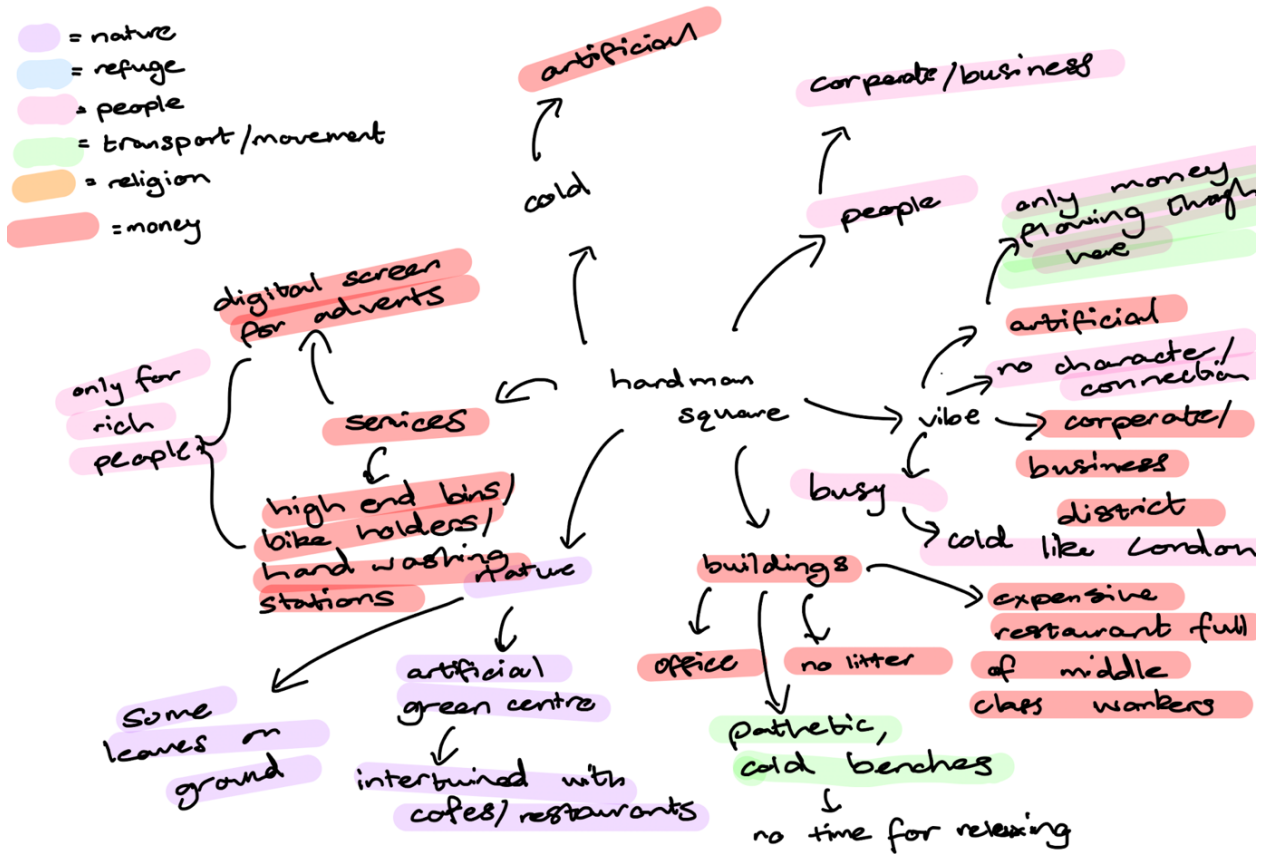 = nature
= refuge
= people
= transport/movement
= religion
= money
artificial
cold
corperate/business
people
only money
flowing though
here
artificial
no character/
connection
vibe
corperate/
business
district
busy
cold like London
hardman
square
digital screen
for adverts
only for
rich
people
services
high end bins/
bike holders/
hand washing
stations
nature
some
leaves on
ground
artificial
green centre
intertwined with
cafes/restaurants
buildings
office
no litter
expensive
restaurant full
of middle
class workers
pathetic,
cold benches
no time for relaxing